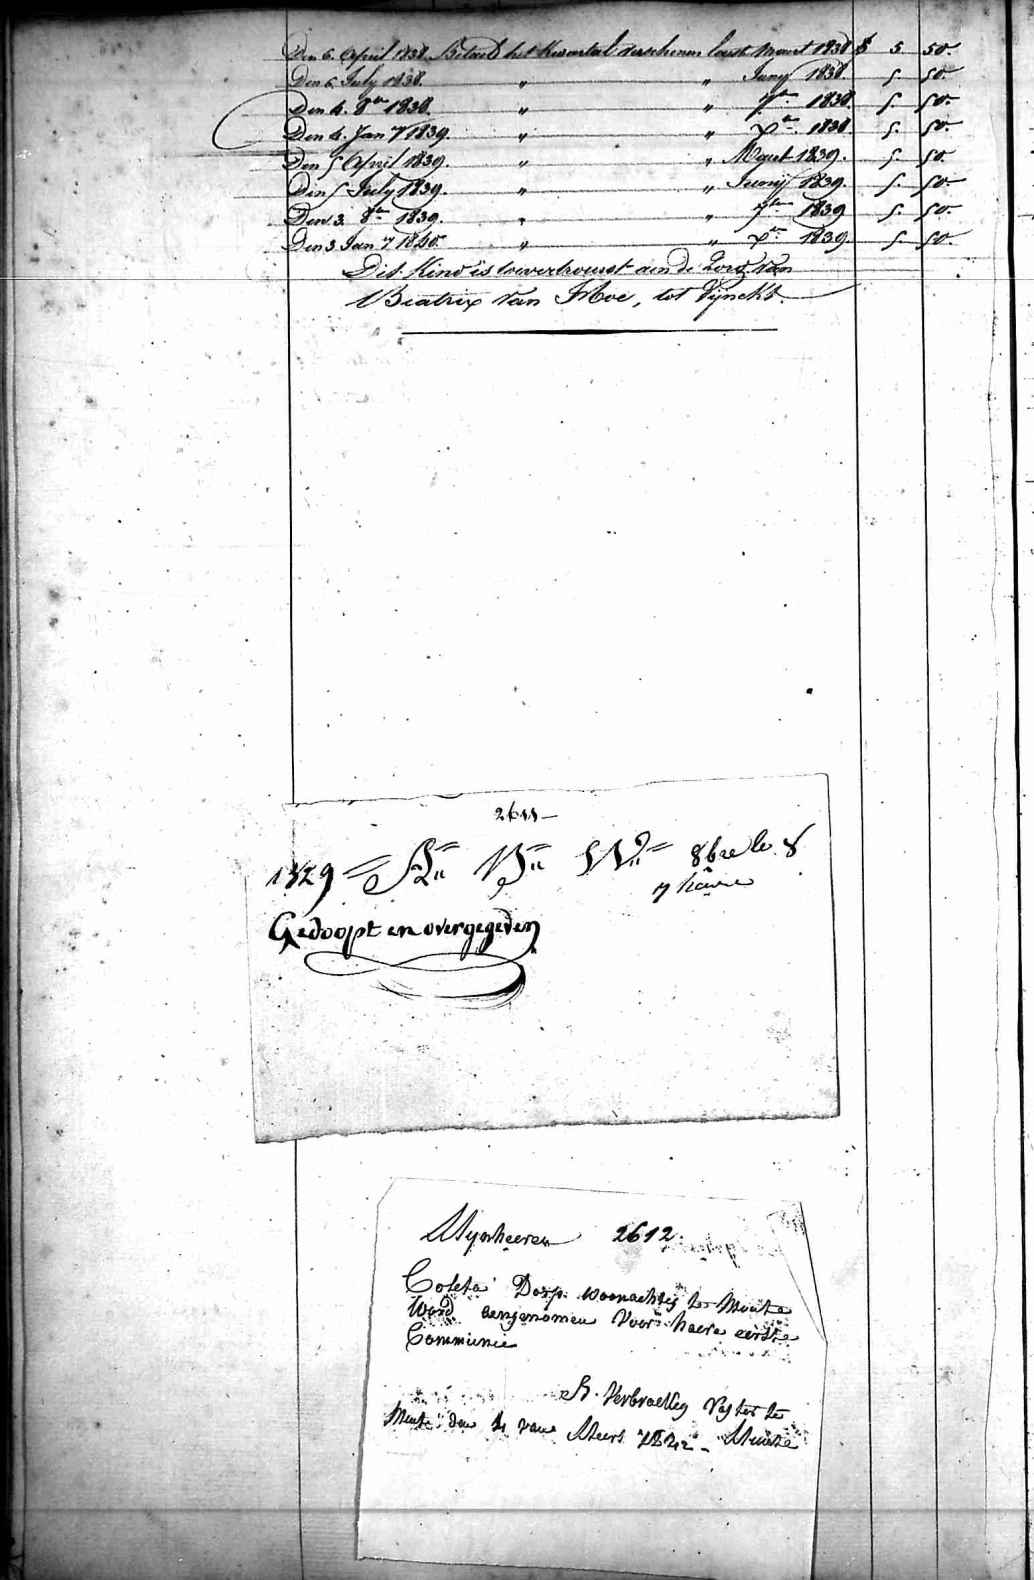 Den 6. April 1838. Betaald het Kwartaal verschenen laatst Maart 1838 f 5 50.
Den 6. July 1838. " " Juny 1838. 5. 50.
Den 4. 8bre 1838. " " 7bre 1838. 5. 50.
Den 4. Jany 1839. " " Xbre 1838 5. 50.
Den 5 April 1839. " " Maart 1839. 5. 50.
Den 5 July 1839. " " Juny 1839. 5. 50.
Den 3. 8bre 1839. " " 7bre 1839 5. 50.
Den 3 Jany 1840. " " Xbre 1839. 5. 50.
Dit Kind is toevertrouwt aen de Zorg van
Beatrix Van Hoe, tot Vijnckt.
2611
1829 A B W 8bre le 8
7 heure
Gedoopt en overgegeven
Mynheeren 2612.
Coleta Dorp woonachtig te Munte
Word aengenomen Voor haere eerste
Communie
Verbraeken Paster te
Munte den 4 van Meert 1842 - Munte